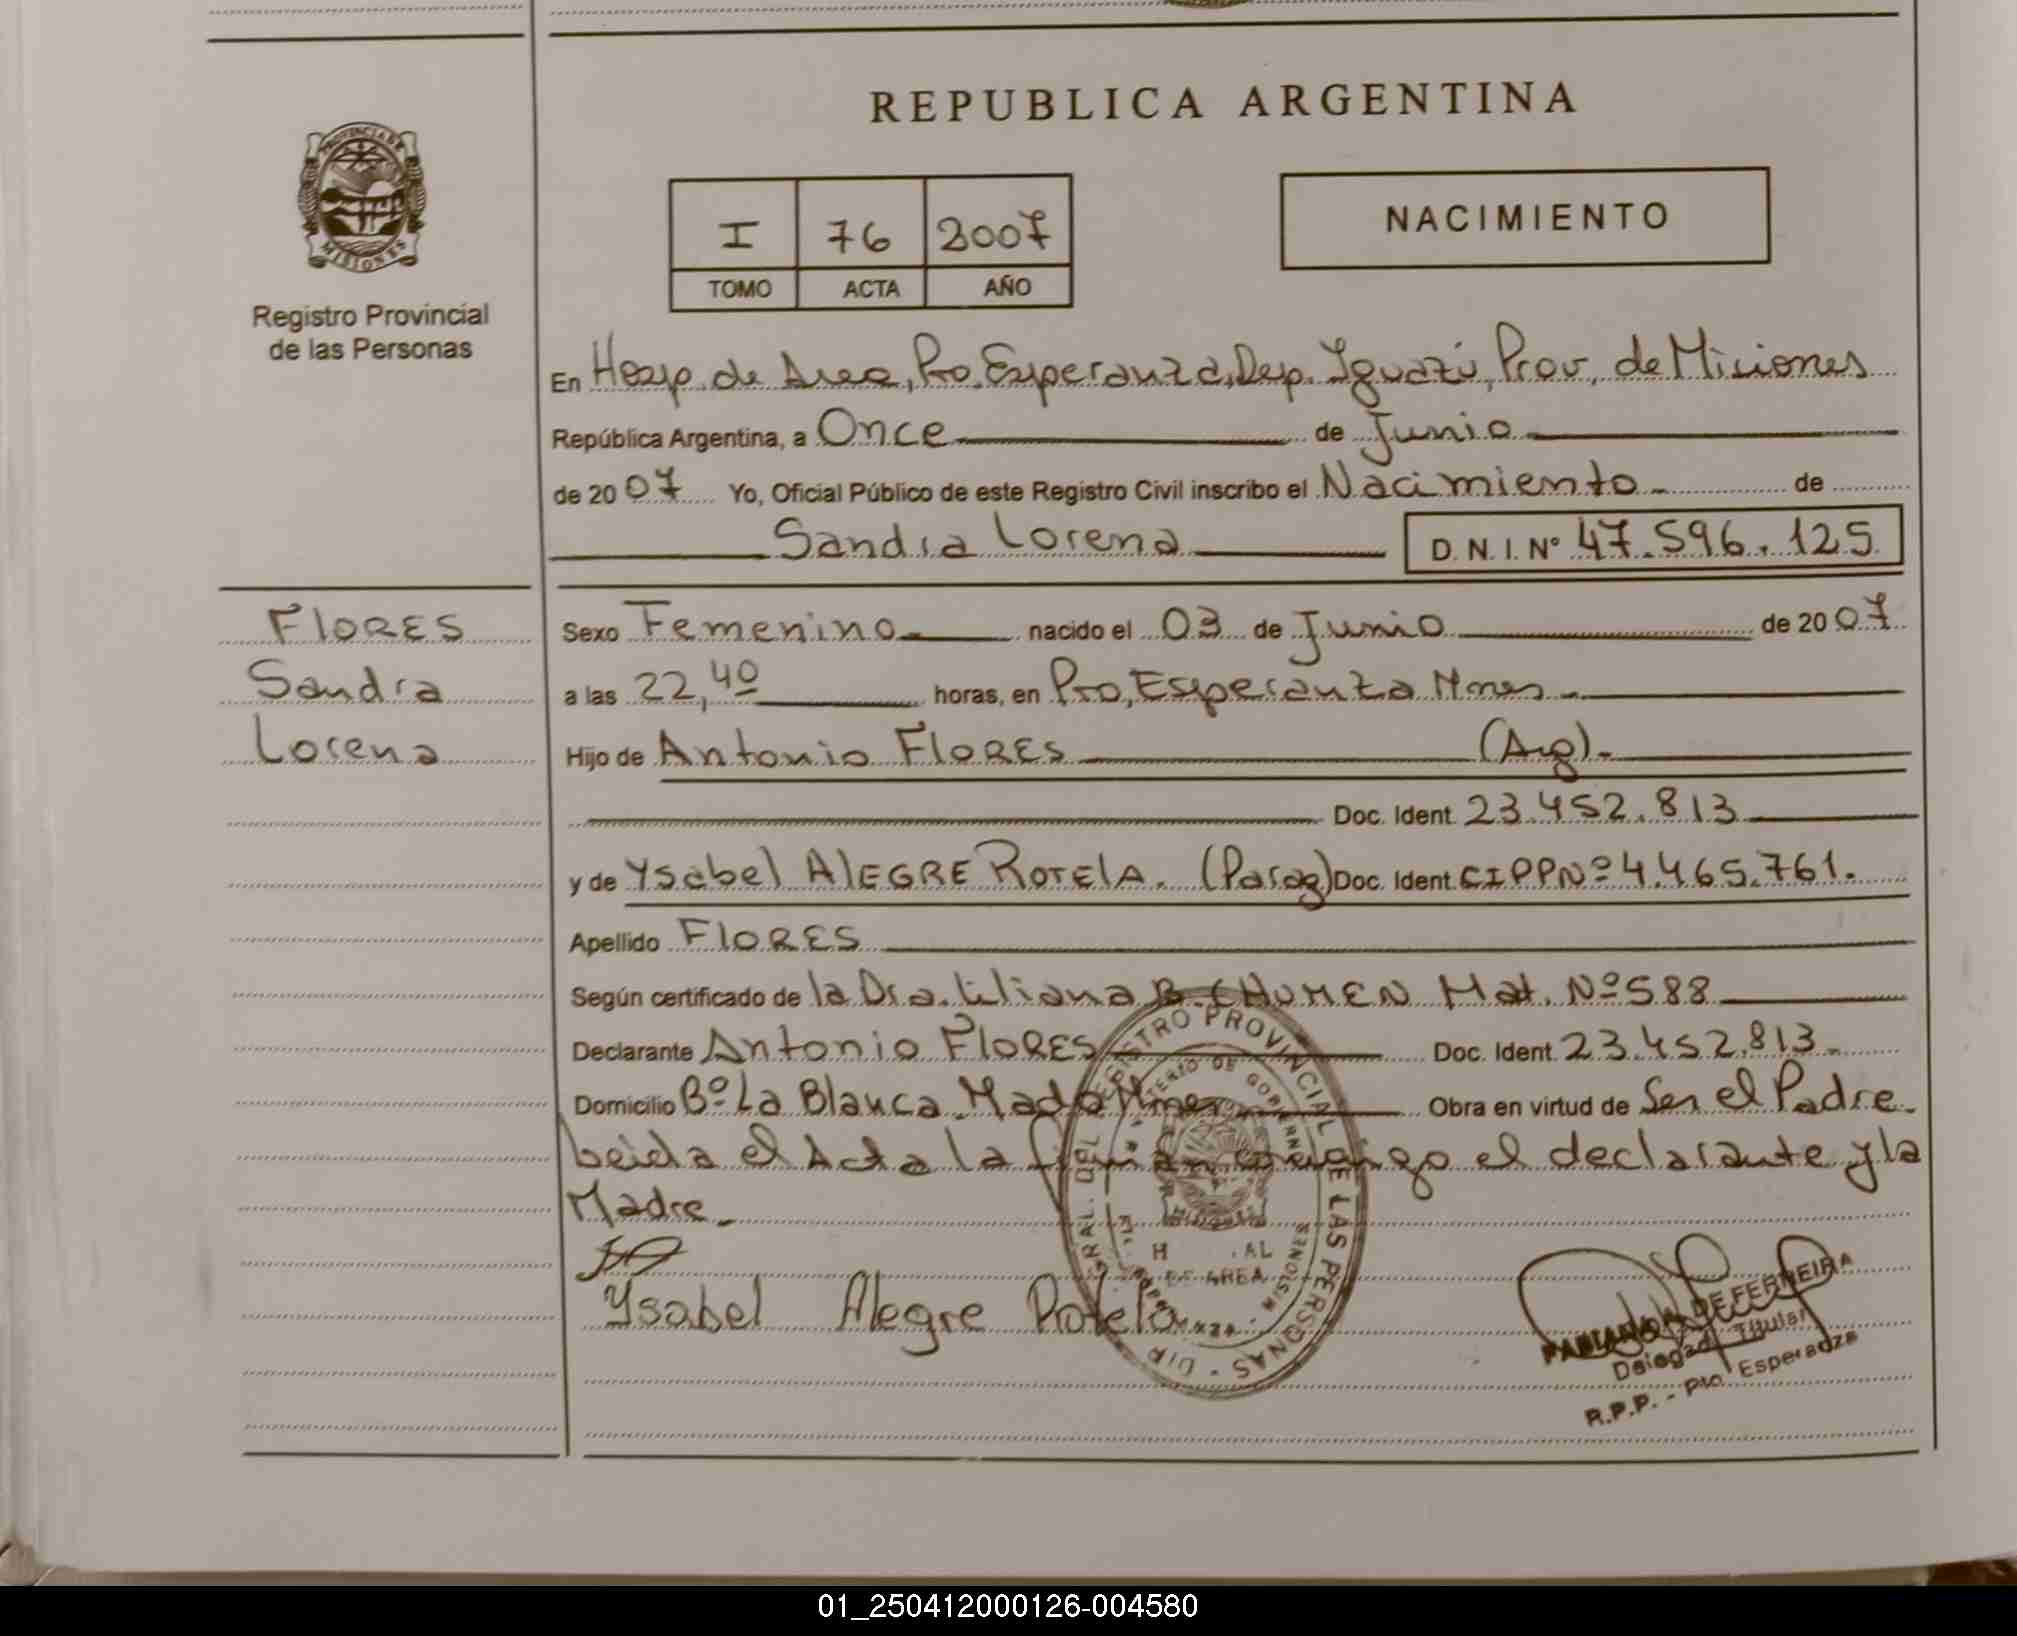 REPUBLICA ARGENTINA
PROVINCIA DE
MISIONES
Registro Provincial
de las Personas
I 76 2007
TOMO ACTA AÑO
NACIMIENTO
En Hosp. de Area, Pto. Esperanza, Dep. Iguazú, Prov. de Misiones
República Argentina, a Once de Junio
de 2007 Yo, Oficial Público de este Registro Civil inscribo el Nacimiento de
Sandra Lorena D.N.I. Nº 47.596.125
FLORES
Sandra
Lorena
Sexo Femenino nacido el 03 de Junio de 2007
a las 22,40 horas, en Pto, Esperanza Mnes
Hijo de Antonio FLORES (Arg).
Doc. Ident. 23.452.813
y de Ysabel ALEGRE ROTELA. (Parag) Doc. Ident. CIPPNº 4.465.761.
Apellido FLORES
Según certificado de la Dra. Liliana B. CHUMEN Mat. Nº 588
Declarante Antonio FLORES Doc. Ident. 23.452.813
Domicilio Bº La Blanca. Mado Mnes Obra en virtud de Ser el Padre.
Leida el Acta la firman conmigo el declarante y la
Madre.
Ysabel Alegre Rotela
DIR. GRAL. DEL REGISTRO PROVINCIAL DE LAS PERSONAS
DE GOBIERNO
MISIONES
DE AREA
DE FERREIRA
Delegada Titular
R.P.P. - Pto. Esperanza
01_250412000126-004580